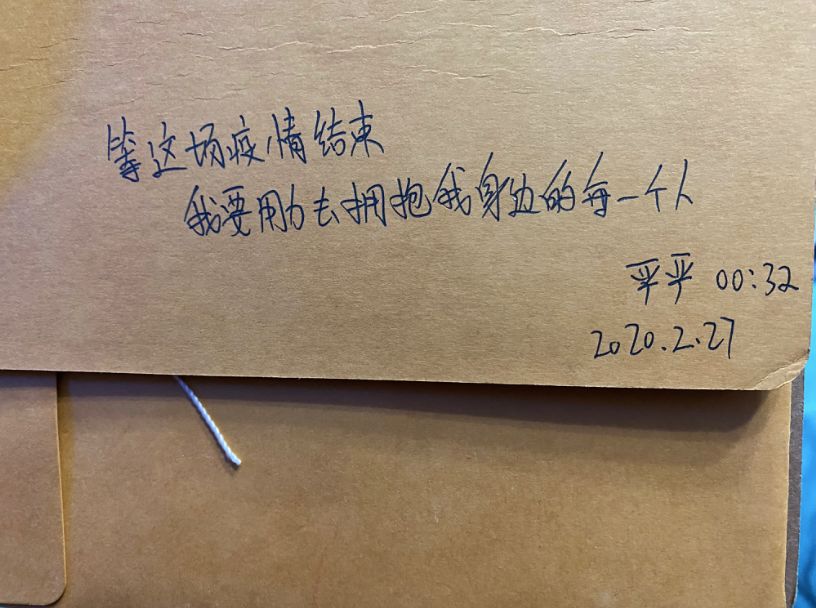 等这场疫情结束
我要用力去拥抱我身边的每一个人
平平 00:32
2020.2.27